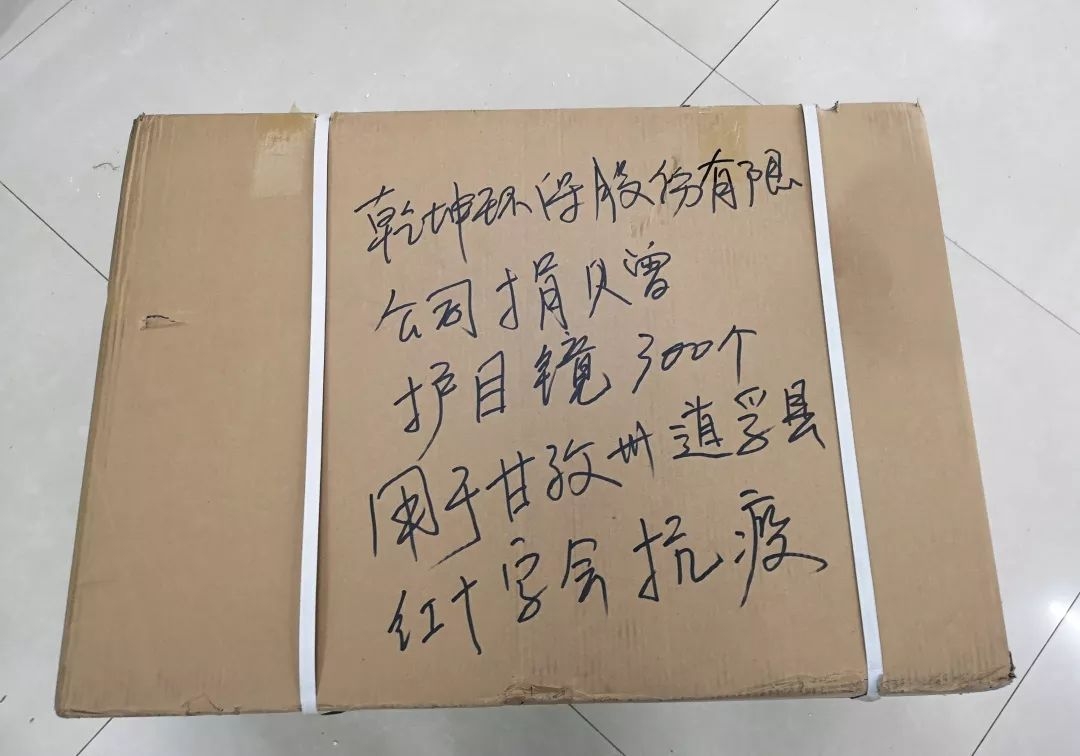 乾坤环保股份有限
公司捐赠
护目镜300个
用于甘孜州道孚县
红十字会抗疫